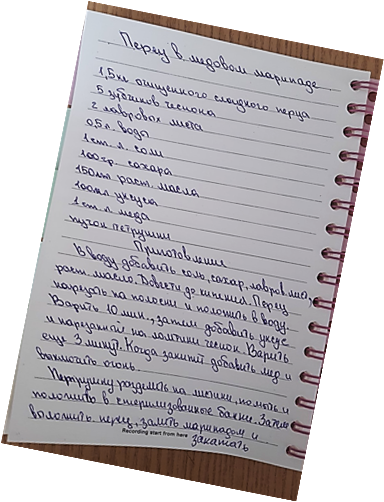 Перец в медовом маринаде.
1,5кг очищенного сладкого перца
5 зубчиков чеснока
2 лавровых листа
0,5л. воды
1 ст. л. соли
100гр. сахара
150мл раст. масла
100мл уксуса
1 ст. л меда
пучок петрушки
Приготовление
В воду добавить соль, сахар, лавров.лист,
раст. масло. Довести до кипения. Перец
нарезать на полоски и положить в воду.
Варить 10 мин., затем добавить уксус
и нарезанный на ломтики чеснок. Варить
еще 3 минут. Когда закипит добавить мед и
выключить огонь.
Петрушку разделить на листики, помыть и
положить в стерилизованное банки. Затем
выложить перец, залить маринадом и
Recording start from here
закатать